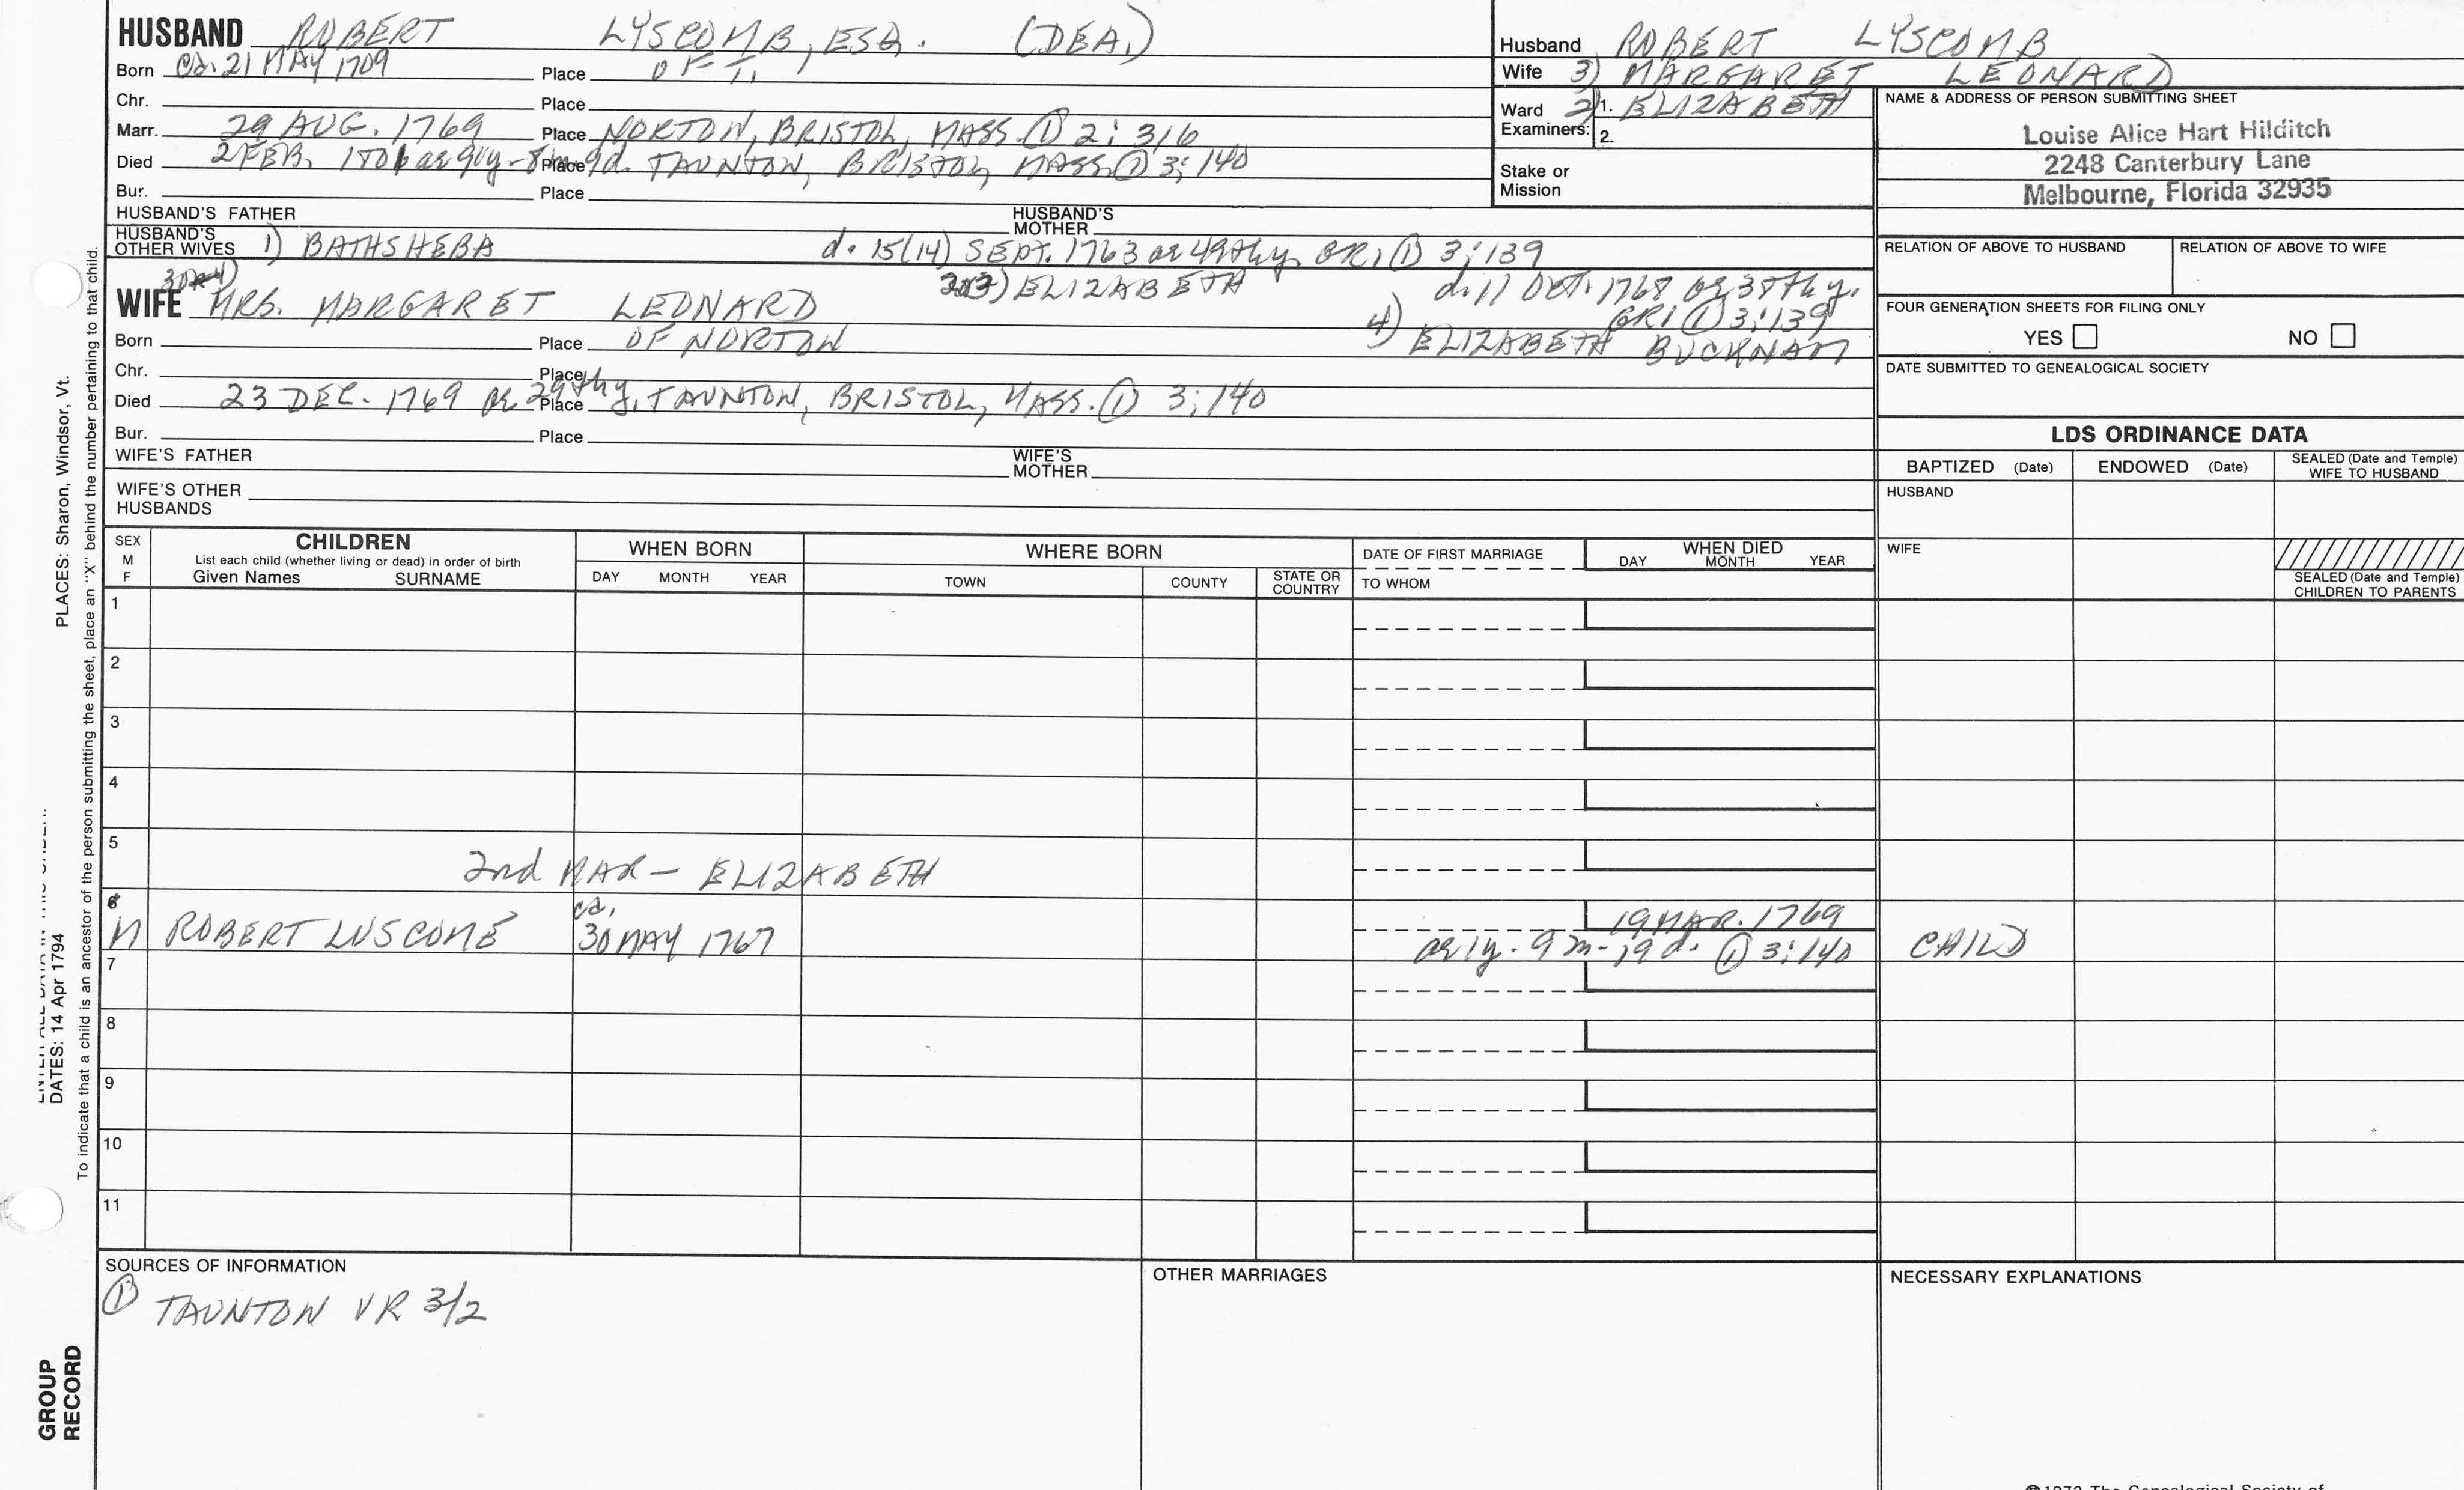 HUSBAND ROBERT LYSCOMB, ESQ. (DEA.)
Born Ca. 21 MAY 1709 Place OF T.
Chr. Place
Marr. 29 AUG. 1769 Place NORTON, BRISTOL, MASS. ① 2:316
Died 2 FEB. ae 9d. Place TAUNTON, BRISTOL, MASS. ① 3:140
Bur. Place
HUSBAND'S FATHER HUSBAND'S MOTHER
HUSBAND'S OTHER WIVES 1) BATHSHEBA d. 15(14) SEPT. 1763 ae 49thy. GR1 ① 3:139
ELIZABETH d. 11 OCT. 1768 ae 38thy.
GR1 ① 3:139
4) ELIZABETH BUCKNAM
WIFE MRS. MARGARET LEONARD
Born Place OF NORTON
Chr. Place
Died 23 DEC. 1769 ae 29thy. Place TAUNTON, BRISTOL, MASS. ① 3:140
Bur. Place
WIFE'S FATHER WIFE'S MOTHER
WIFE'S OTHER HUSBANDS
Husband ROBERT LYSCOMB
Wife 3) MARGARET LEONARD
Ward 2) 1. ELIZABETH
Examiners: 2.
Stake or
Mission
NAME & ADDRESS OF PERSON SUBMITTING SHEET
Louise Alice Hart Hilditch
2248 Canterbury Lane
Melbourne, Florida 32935
RELATION OF ABOVE TO HUSBAND RELATION OF ABOVE TO WIFE
FOUR GENERATION SHEETS FOR FILING ONLY
YES NO
DATE SUBMITTED TO GENEALOGICAL SOCIETY
LDS ORDINANCE DATA
BAPTIZED (Date) ENDOWED (Date) SEALED (Date and Temple) WIFE TO HUSBAND
HUSBAND
WIFE
SEALED (Date and Temple) CHILDREN TO PARENTS
SEX M F CHILDREN WHEN BORN WHERE BORN DATE OF FIRST MARRIAGE WHEN DIED
List each child (whether living or dead) in order of birth
Given Names SURNAME DAY MONTH YEAR TOWN COUNTY STATE OR COUNTRY TO WHOM DAY MONTH YEAR
1
2
3
4
5
2nd MAR — ELIZABETH
6
M ROBERT LUSCOME ca. 30 MAY 1767 19 MAR. 1769
ae 1y. 9m-19d. ① 3:140 CHILD
7
8
9
10
11
SOURCES OF INFORMATION
① TAUNTON VR 3/2
OTHER MARRIAGES
NECESSARY EXPLANATIONS
PLACES: Sharon, Windsor, Vt.
DATES: 14 Apr 1794
To indicate that a child is an ancestor of the person submitting the sheet, place an "X" behind the number pertaining to that child.
GROUP
RECORD